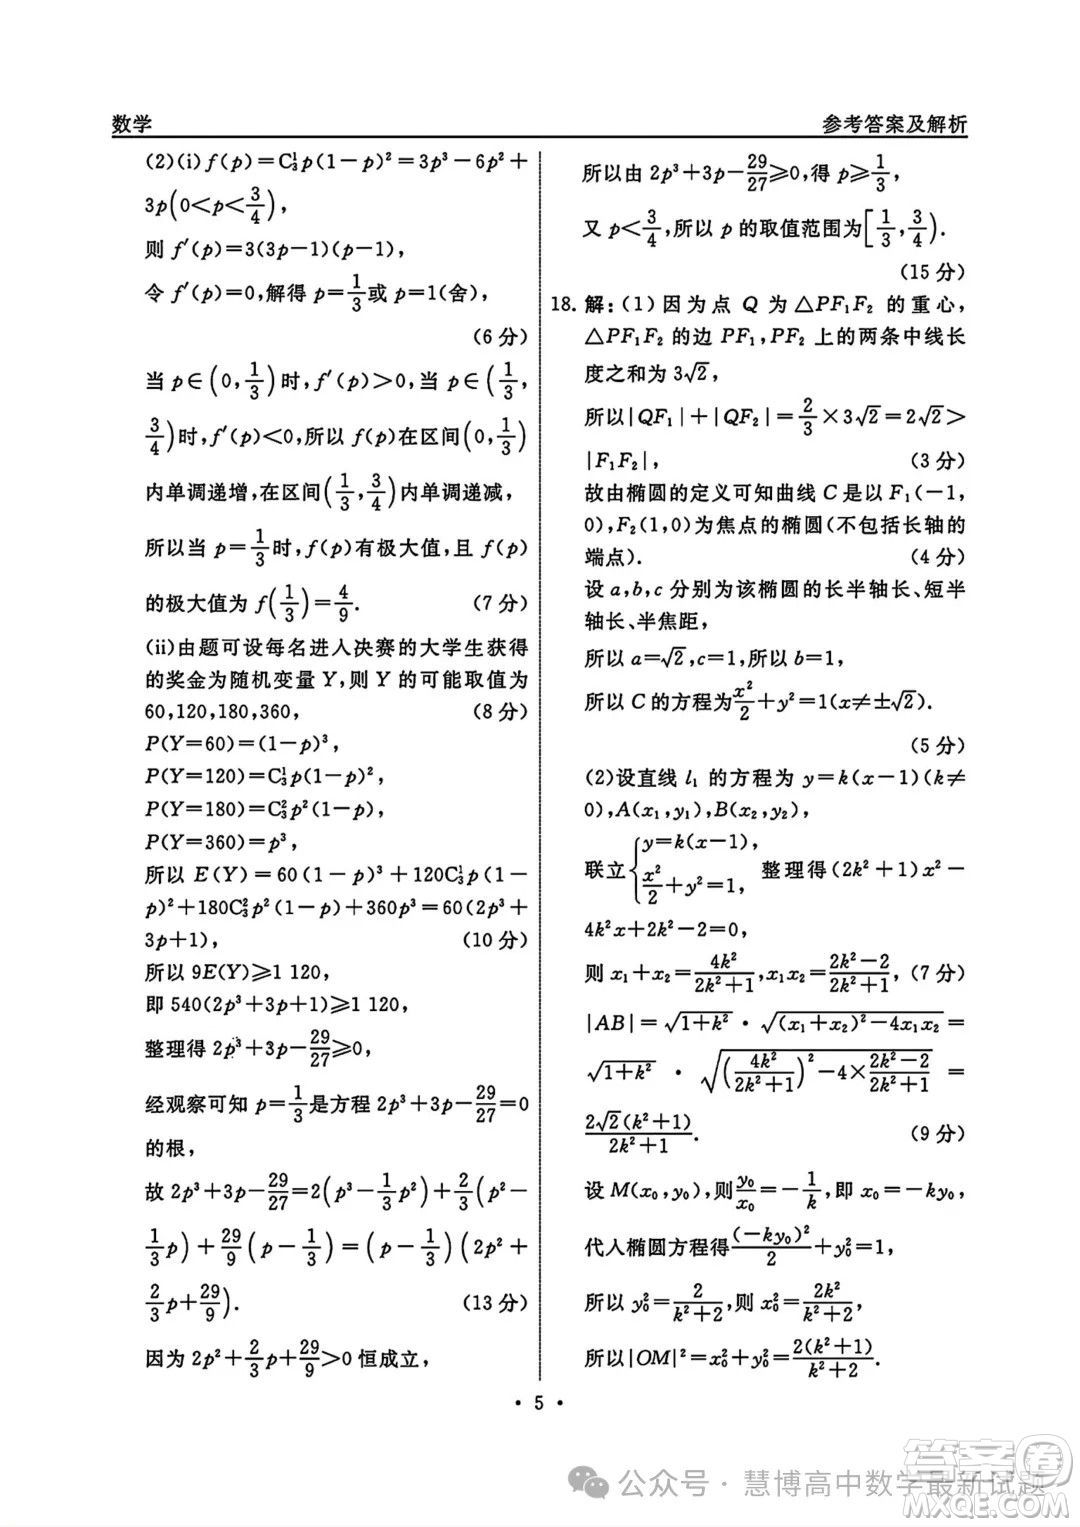 数学
参考答案及解析
(2)(i) f(p)=C₃¹p(1−p)²=3p³−6p²+
3p(0<p<3/4),
则 f′(p)=3(3p−1)(p−1),
令 f′(p)=0,解得 p=1/3或 p=1(舍),
(6 分)
当 p∈(0,1/3)时,f′(p)>0,当 p∈(1/3,
3/4)时,f′(p)<0,所以 f(p)在区间(0,1/3)
内单调递增,在区间(1/3,3/4)内单调递减,
所以当 p=1/3时,f(p)有极大值,且 f(p)
的极大值为 f(1/3)=4/9. (7 分)
(ii)由题可设每名进入决赛的大学生获得
的奖金为随机变量 Y,则 Y 的可能取值为
60,120,180,360, (8 分)
P(Y=60)=(1−p)³,
P(Y=120)=C₃¹p(1−p)²,
P(Y=180)=C₃²p²(1−p),
P(Y=360)=p³,
所以 E(Y)=60(1−p)³+120C₃¹p(1−
p)²+180C₃²p²(1−p)+360p³=60(2p³+
3p+1), (10 分)
所以 9E(Y)≥1 120,
即 540(2p³+3p+1)≥1 120,
整理得 2p³+3p−29/27≥0,
经观察可知 p=1/3是方程 2p³+3p−29/27=0
的根,
故 2p³+3p−29/27=2(p³−1/3p²)+2/3(p²−
1/3p)+29/9(p−1/3)=(p−1/3)(2p²+
2/3p+29/9). (13 分)
因为 2p²+2/3p+29/9>0 恒成立,
所以由 2p³+3p−29/27≥0,得 p≥1/3,
又 p<3/4,所以 p 的取值范围为[1/3,3/4).
(15 分)
18. 解:(1)因为点 Q 为 △PF₁F₂ 的重心,
△PF₁F₂ 的边 PF₁,PF₂ 上的两条中线长
度之和为 3√2,
所以|QF₁|+|QF₂|=2/3×3√2=2√2>
|F₁F₂|, (3 分)
故由椭圆的定义可知曲线 C 是以 F₁(−1,
0),F₂(1,0)为焦点的椭圆(不包括长轴的
端点). (4 分)
设 a,b,c 分别为该椭圆的长半轴长、短半
轴长、半焦距,
所以 a=√2,c=1,所以 b=1,
所以 C 的方程为x²/2+y²=1(x≠±√2).
(5 分)
(2)设直线 l₁ 的方程为 y=k(x−1)(k≠
0),A(x₁,y₁),B(x₂,y₂),
联立{y=k(x−1), x²/2+y²=1, 整理得(2k²+1)x²−
4k²x+2k²−2=0,
则 x₁+x₂=4k²/(2k²+1),x₁x₂=(2k²−2)/(2k²+1), (7 分)
|AB|=√(1+k²)·√((x₁+x₂)²−4x₁x₂)=
√(1+k²)·√((4k²/(2k²+1))²−4×(2k²−2)/(2k²+1))=
2√2(k²+1)/(2k²+1). (9 分)
设 M(x₀,y₀),则y₀/x₀=−1/k,即 x₀=−ky₀,
代入椭圆方程得(−ky₀)²/2+y₀²=1,
所以 y₀²=2/(k²+2),则 x₀²=2k²/(k²+2),
所以|OM|²=x₀²+y₀²=2(k²+1)/(k²+2).
· 5 ·
公众号 · 慧博高中数学最新试题
答案圈
MXQE.COM